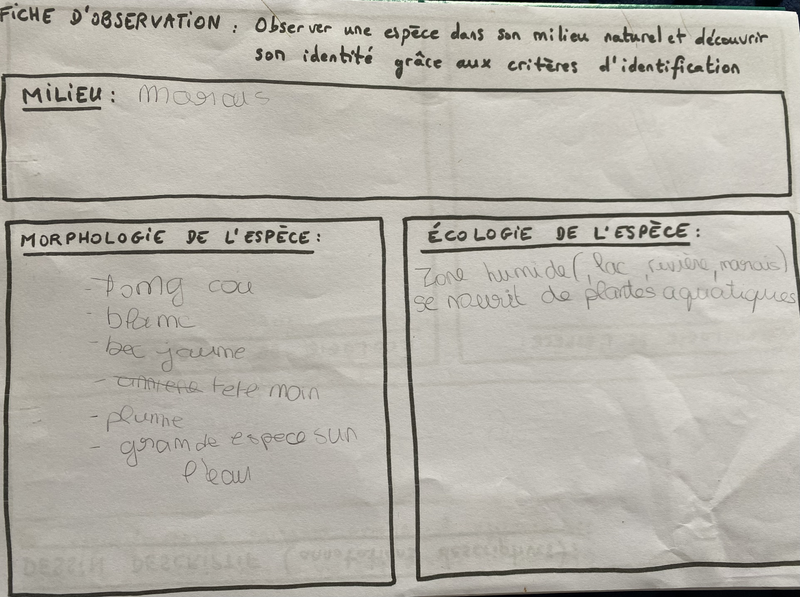 FICHE D'OBSERVATION : Observer une espèce dans son milieu naturel et découvrir
son identité grâce aux critères d'identification
MILIEU : Marais
MORPHOLOGIE DE L'ESPÈCE :
- long cou
- blanc
- bec jaune
- tete noir
- plume
- grande espece sur
l'eau
ÉCOLOGIE DE L'ESPÈCE :
Zone humide (, lac, rivière, marais)
se nourrit de plantes aquatiques
DESSIN DESCRIPTIF (annotations descriptives) :